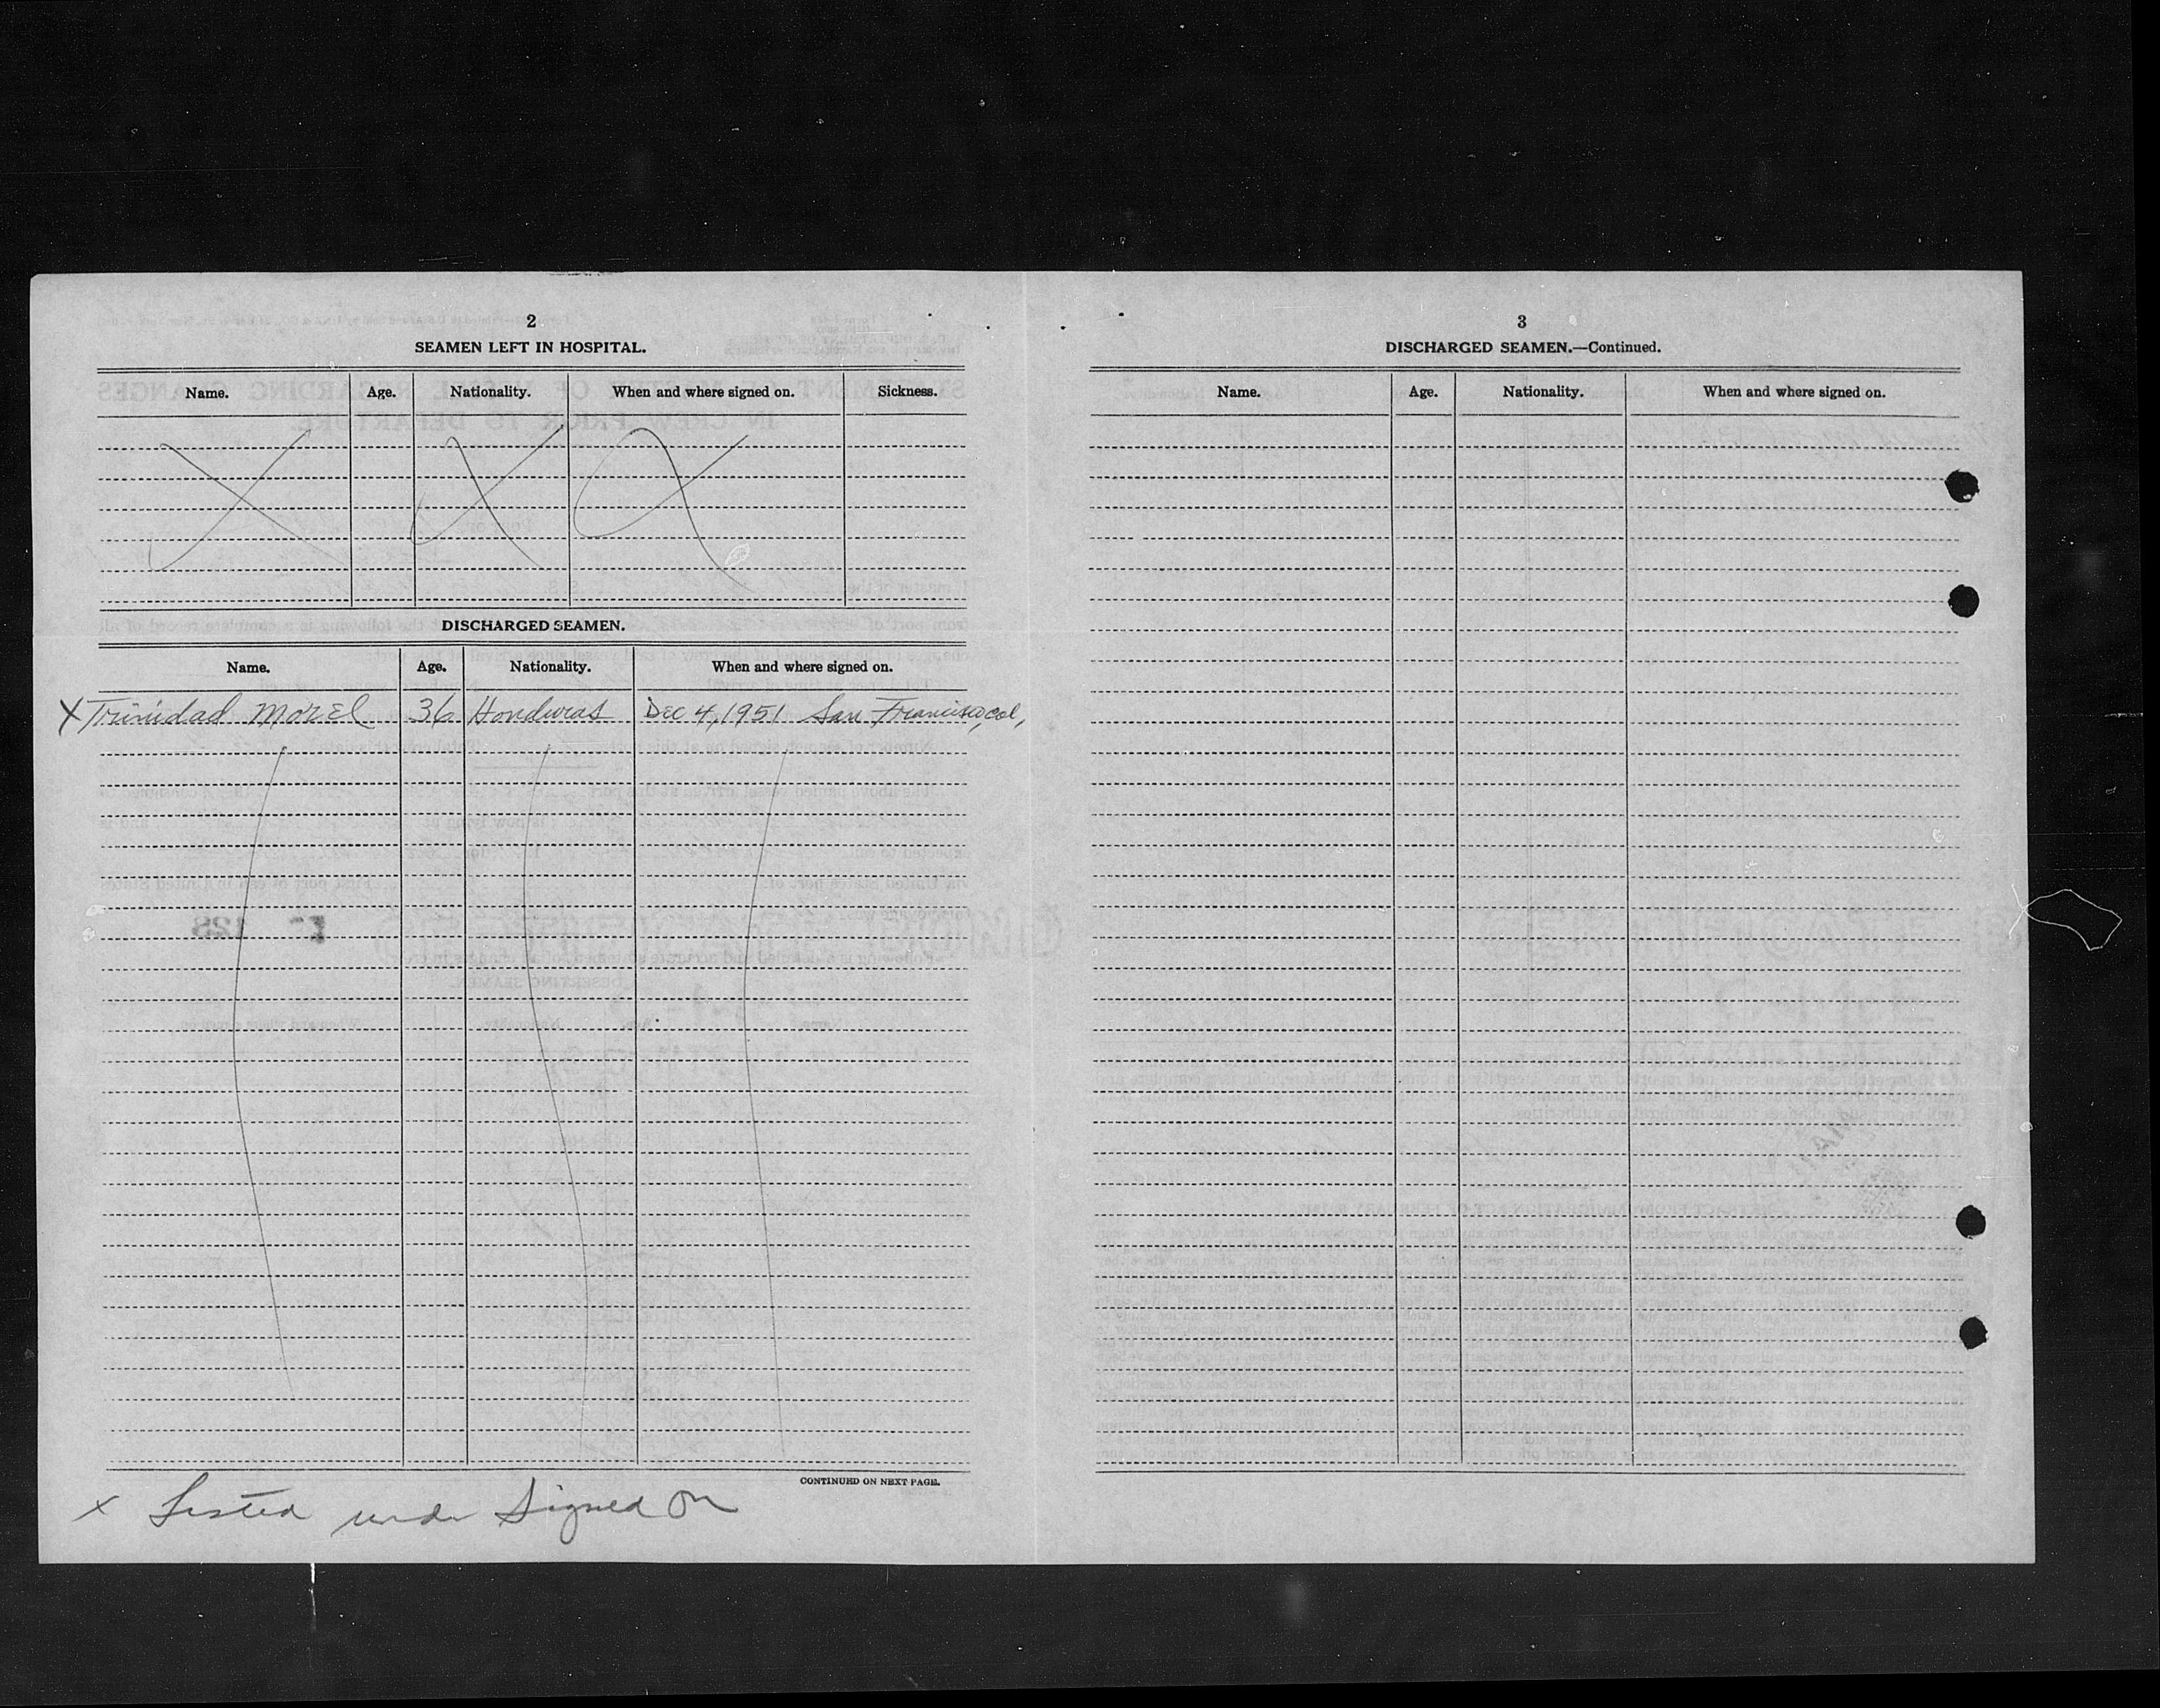 2
SEAMEN LEFT IN HOSPITAL.
Name. Age. Nationality. When and where signed on. Sickness.
DISCHARGED SEAMEN.
Name. Age. Nationality. When and where signed on.
X Trinidad Morel 36 Honduras Dec 4, 1951 San Francisco, Cal,
CONTINUED ON NEXT PAGE.
x Listed under Signed On
3
DISCHARGED SEAMEN.—Continued.
Name. Age. Nationality. When and where signed on.